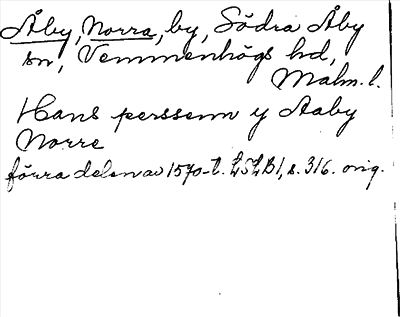 Åby, Norra, by, Södra Åby
sn, Vemmenhögs hd,
Malm. l.
Hans perssenn y Aaby
Norre
förra delen av 1570-t. LSLB1, s. 316. orig.